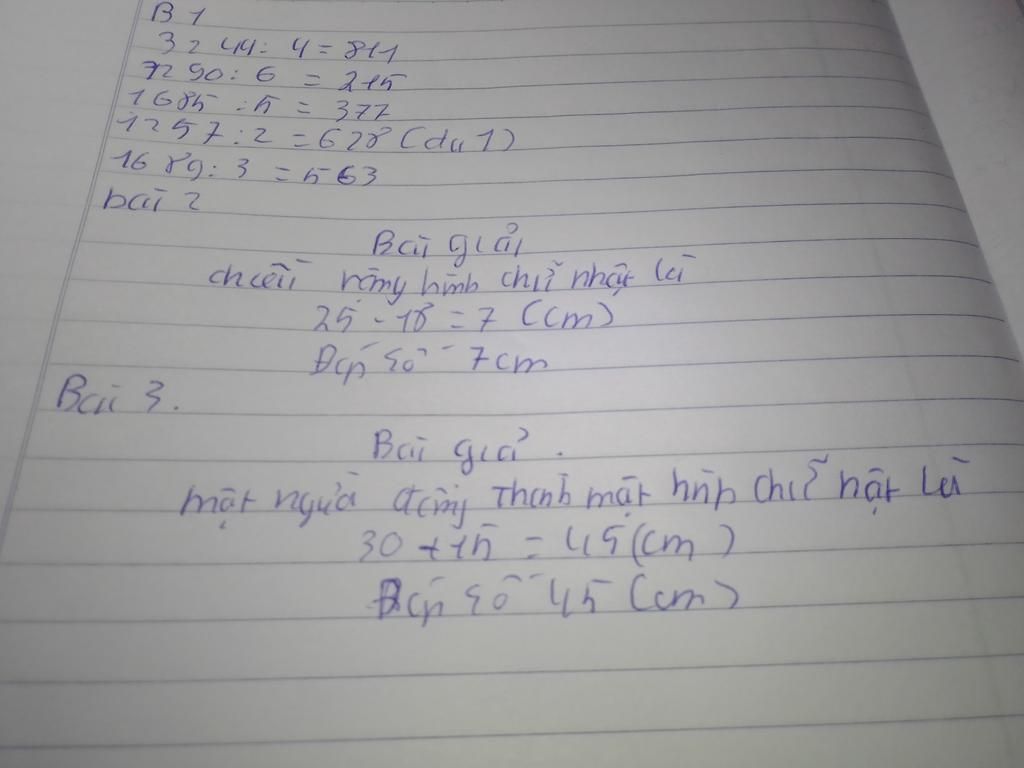 B 1
3244: 4 = 811
1290: 6 = 215
1685 : 5 = 377
1257: 2 = 628 (dư 1)
1689: 3 = 563
bài 2
Bài giải
chiều rộng hình chữ nhật là
25 - 18 = 7 (cm)
Đáp số 7cm
Bài 3.
Bài giả.
một người thành một hình chữ nhật là
30 + 15 = 45 (cm)
Đáp số 45 (cm)